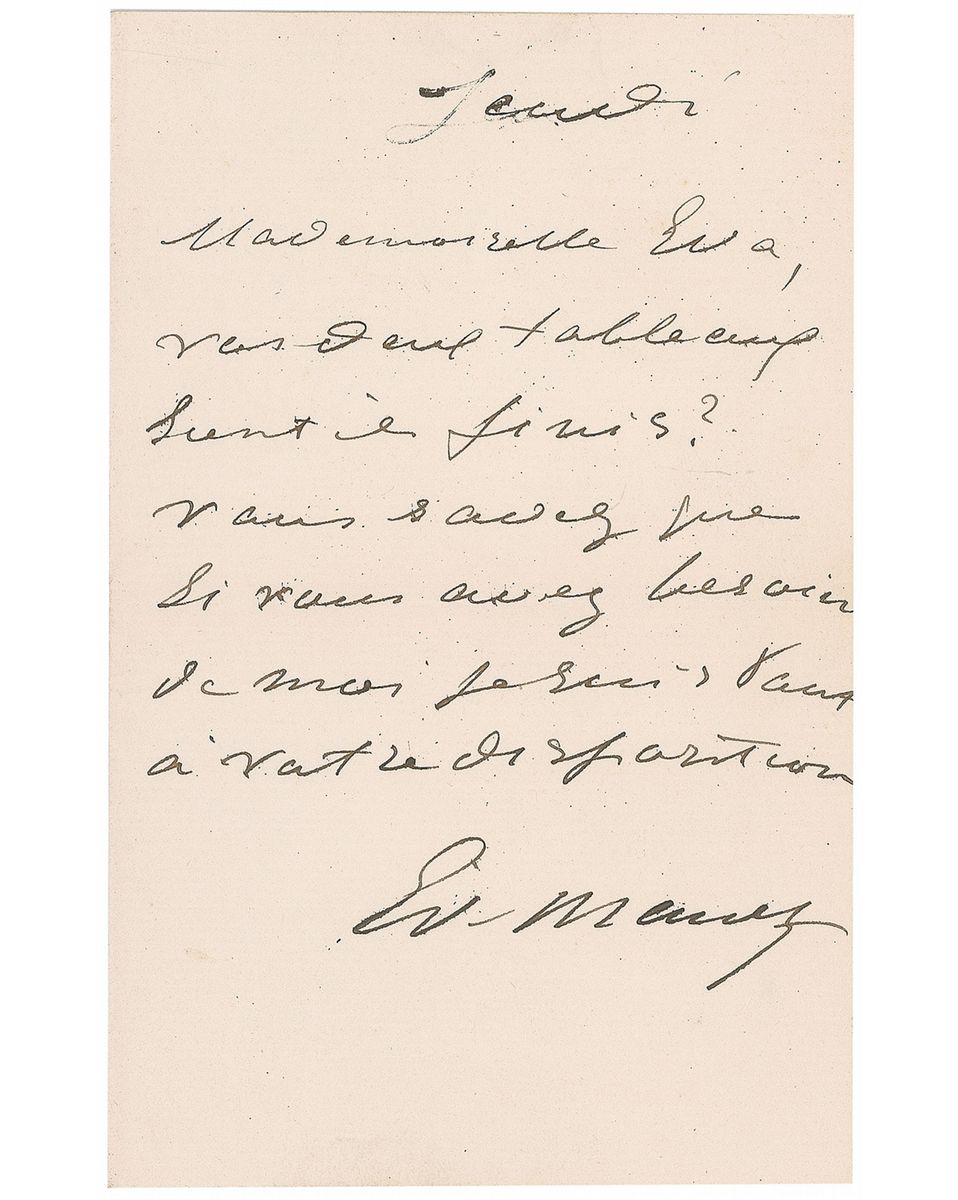 Jeudi
Mademoiselle Eva,
vos deux tableaux
sont ils finis?
vous savez que
si vous avez besoin
de moi je suis tout
à votre disposition
Ed. Manet